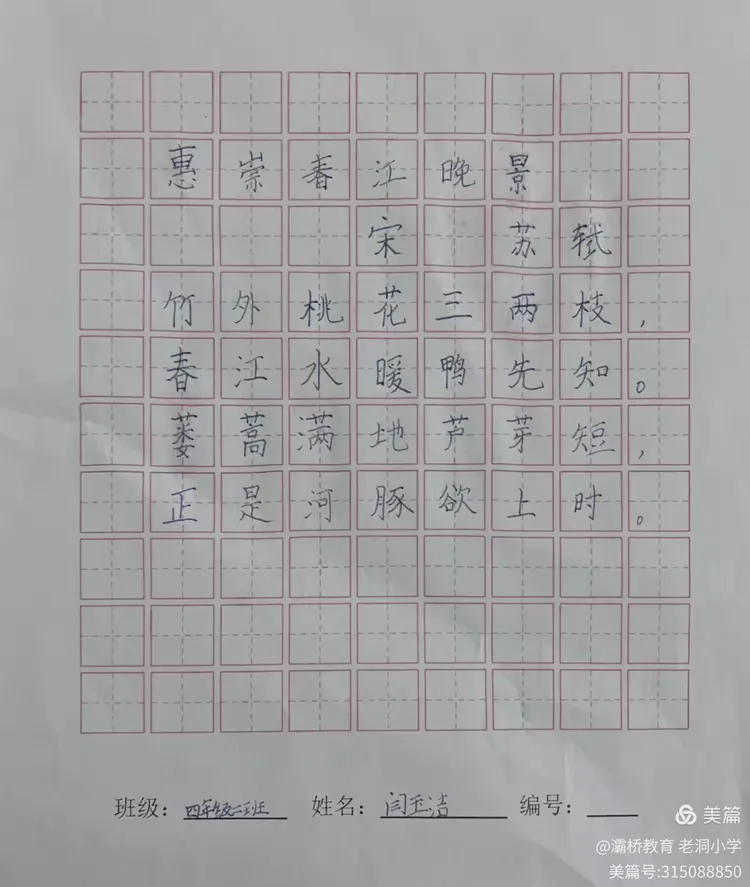 惠崇春江晚景
宋 苏轼
竹外桃花三两枝，
春江水暖鸭先知。
蒌蒿满地芦芽短，
正是河豚欲上时。
班级：四年级二班 姓名：闫玉洁 编号：
美篇
@灞桥教育 老洞小学
美篇号:315088850